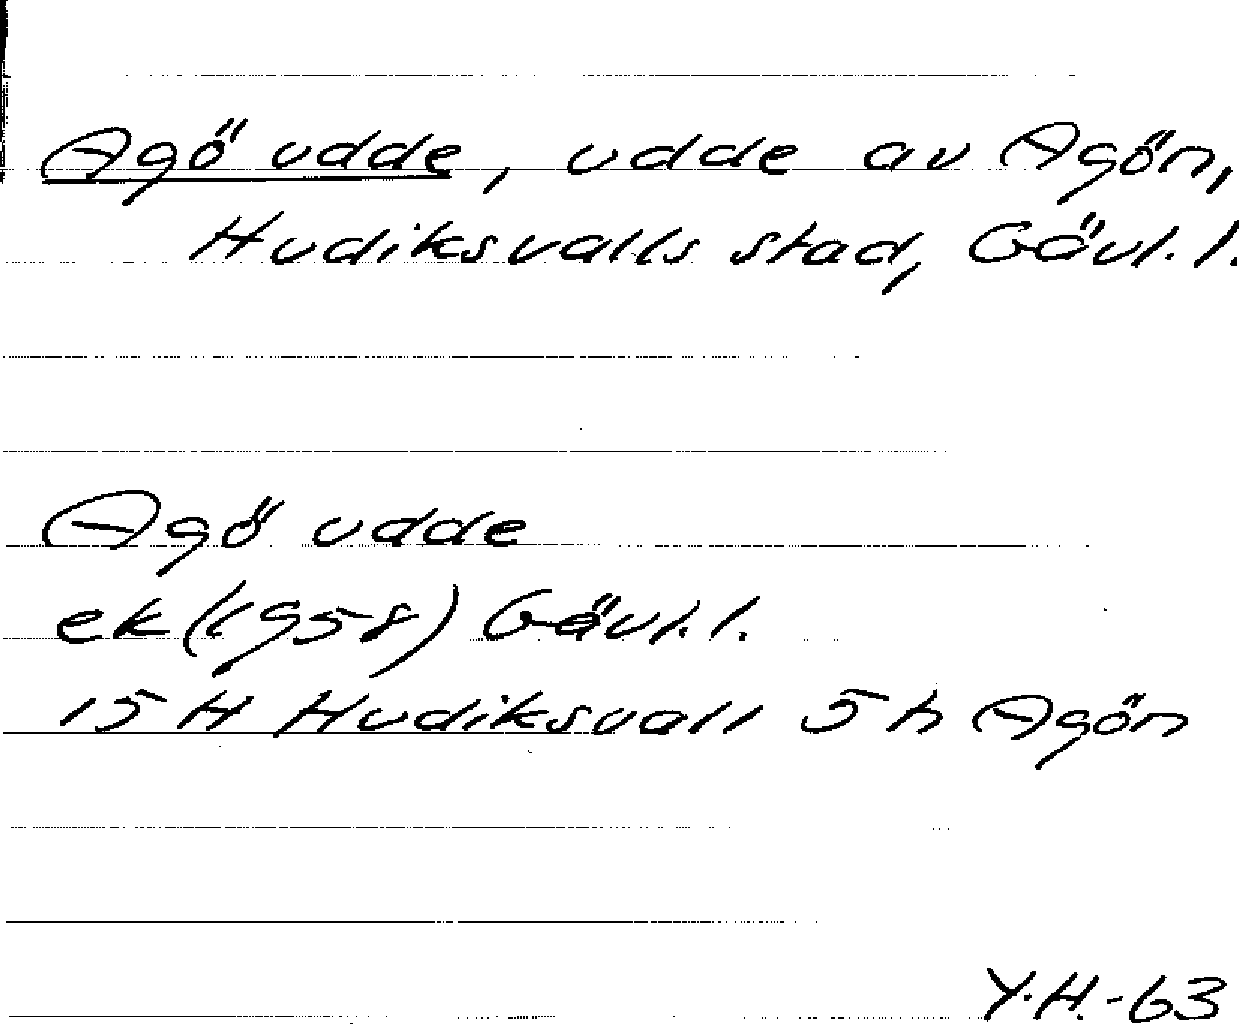 Agö udde, udde av Agön,
Hudiksvalls stad, Gävl. l.
Agö udde
ek (1958) Gävl. l.
15 H Hudiksvall 5 h Agön
Y.H.-63